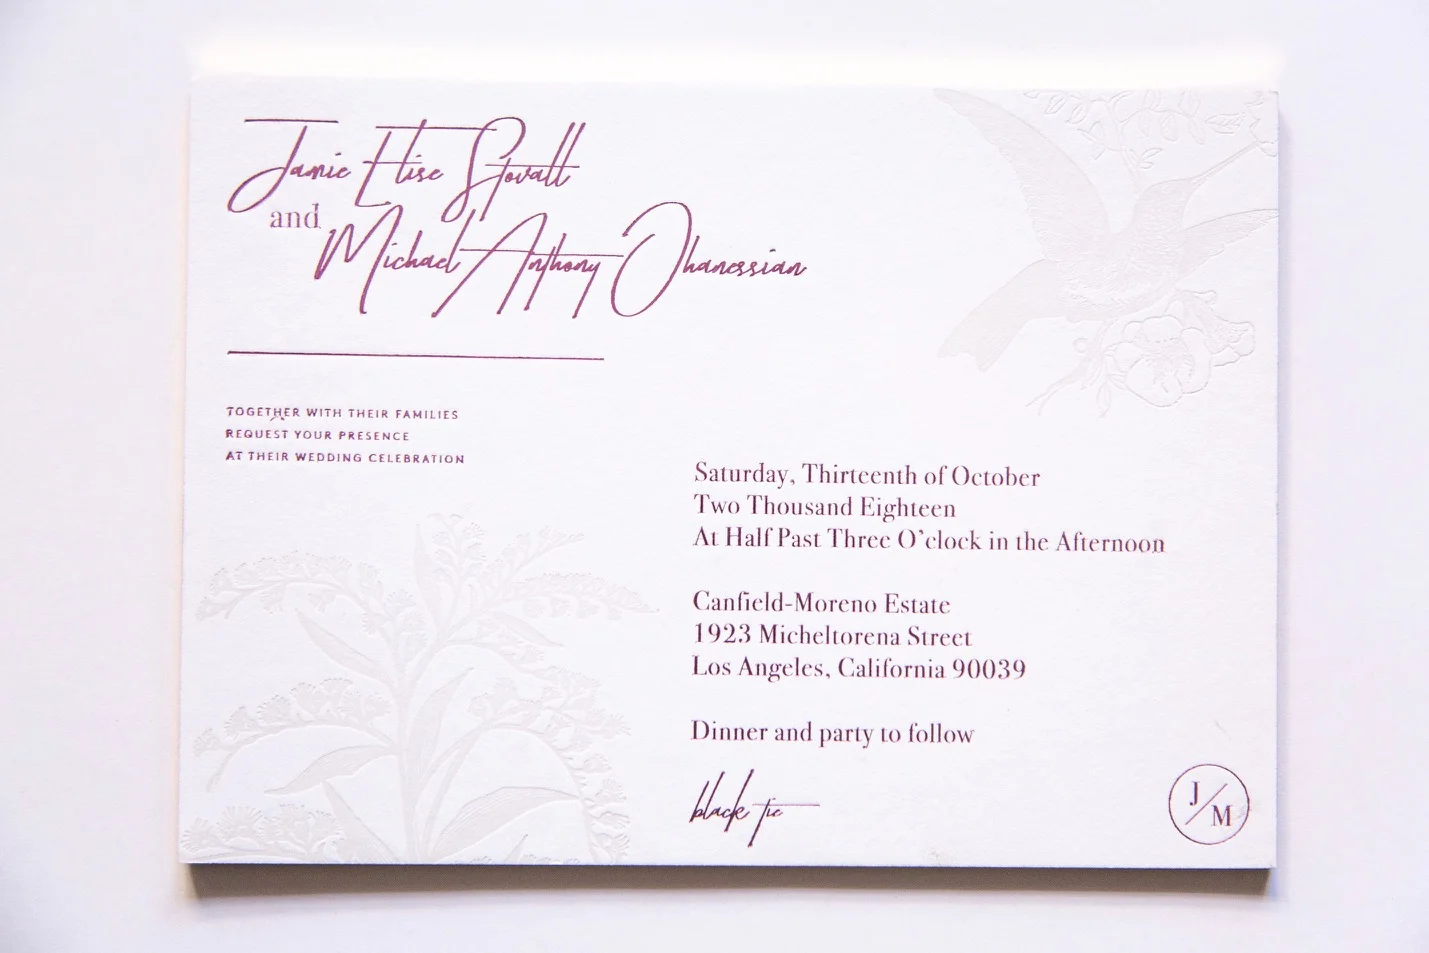 Jamie Elise Stovall
and
Michael Anthony Ohanessian
TOGETHER WITH THEIR FAMILIES
REQUEST YOUR PRESENCE
AT THEIR WEDDING CELEBRATION
Saturday, Thirteenth of October
Two Thousand Eighteen
At Half Past Three O'clock in the Afternoon
Canfield-Moreno Estate
1923 Micheltorena Street
Los Angeles, California 90039
Dinner and party to follow
black tie
J/M